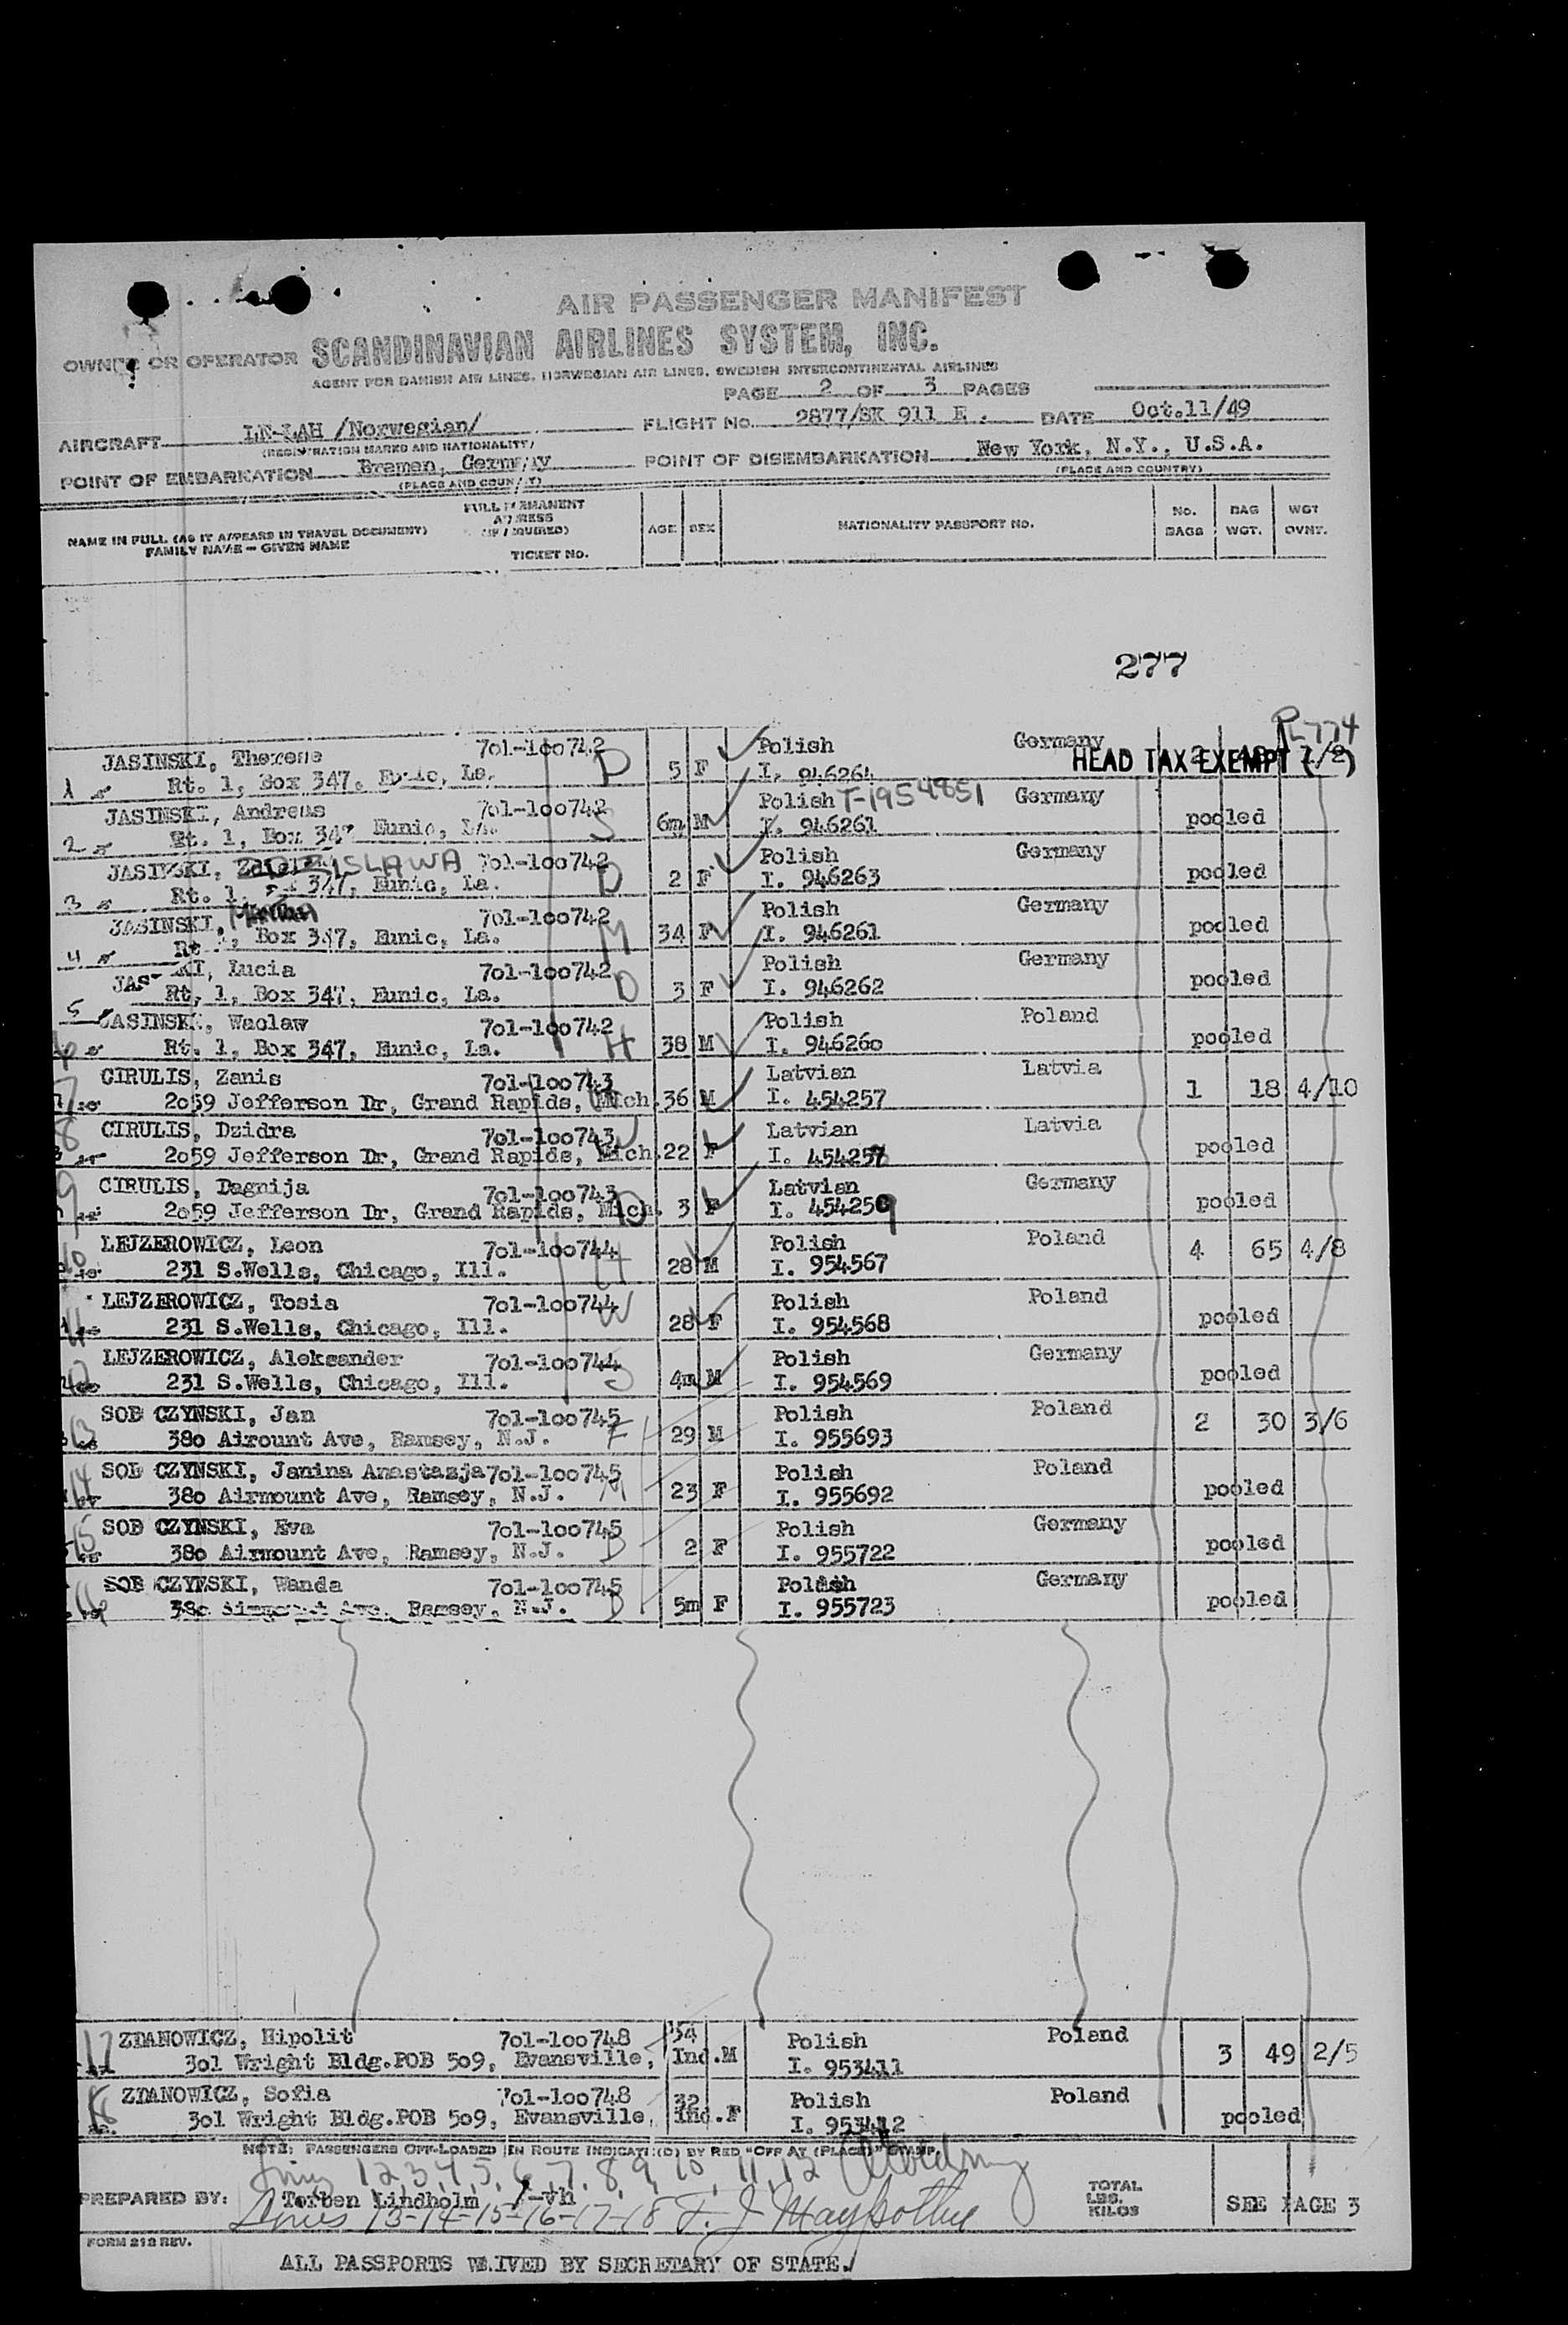 AIR PASSENGER MANIFEST
OWNER OR OPERATOR SCANDINAVIAN AIRLINES SYSTEM, INC.
AGENT FOR DANISH AIR LINES, NORWEGIAN AIR LINES, SWEDISH INTERCONTINENTAL AIRLINES
PAGE 2 OF 3 PAGES
AIRCRAFT LN-LAH /Norwegian/ FLIGHT No. 2877/SK 911 E. DATE Oct.11/49
(REGISTRATION MARKS AND NATIONALITY)
POINT OF EMBARKATION Bremen, Germany POINT OF DISEMBARKATION New York, N.Y., U.S.A.
(PLACE AND COUNTRY) (PLACE AND COUNTRY)
NAME IN FULL (AS IT APPEARS IN TRAVEL DOCUMENT) FAMILY NAME - GIVEN NAME FULL PERMANENT ADDRESS (IF REQUIRED) TICKET NO. AGE SEX NATIONALITY PASSPORT NO. No. BAGS BAG WGT. WGT OVNT.
277
PL 774
HEAD TAX EXEMPT (1/2)
1 JASINSKI, Therese 701-100742 D 5 F Polish Germany
Rt. 1, Box 347, Eunic, La. I. 946264
2 JASINSKI, Andreas 701-100742 S 6m M Polish T-1954851 Germany pooled
Rt. 1, Box 347 Eunic, La. I. 946261
3 JASINSKI, ZDZISLAWA 701-100742 D 2 F Polish Germany pooled
Rt. 1, Box 347, Eunic, La. I. 946263
4 JASINSKI, 701-100742 M 34 F Polish Germany pooled
Rt. 1, Box 347, Eunic, La. I. 946261
5 JASINSKI, Lucia 701-100742 D 3 F Polish Germany pooled
Rt. 1, Box 347, Eunic, La. I. 946262
6 JASINSKI, Waclaw 701-100742 H 38 M Polish Poland pooled
Rt. 1, Box 347, Eunic, La. I. 946260
7 CIRULIS, Zanis 701-100743 36 M Latvian Latvia 1 18 4/10
2059 Jefferson Dr, Grand Rapids, Mich. I. 454257
8 CIRULIS, Dzidra 701-100743 W 22 F Latvian Latvia pooled
2059 Jefferson Dr, Grand Rapids, Mich. I. 454258
9 CIRULIS, Dagnija 701-100743 D 3 F Latvian Germany pooled
2059 Jefferson Dr, Grand Rapids, Mich. I. 454259
10 LEJZEROWICZ, Leon 701-100744 H 28 M Polish Poland 4 65 4/8
231 S.Wells, Chicago, Ill. I. 954567
11 LEJZEROWICZ, Tosia 701-100744 W 28 F Polish Poland pooled
231 S.Wells, Chicago, Ill. I. 954568
12 LEJZEROWICZ, Aleksander 701-100744 S 4m M Polish Germany pooled
231 S.Wells, Chicago, Ill. I. 954569
13 SOB CZYNSKI, Jan 701-100745 F 29 M Polish Poland 2 30 3/6
380 Airount Ave, Ramsey, N.J. I. 955693
14 SOB CZYNSKI, Janina Anastazja 701-100745 M 23 F Polish Poland pooled
380 Airmount Ave, Ramsey, N.J. I. 955692
15 SOB CZYNSKI, Eva 701-100745 D 2 F Polish Germany pooled
380 Airmount Ave, Ramsey, N.J. I. 955722
16 SOB CZYNSKI, Wanda 701-100745 D 5m F Polish Germany pooled
380 Airmount Ave, Ramsey, N.J. I. 955723
17 ZDANOWICZ, Hipolit 701-100748 34 M Polish Poland 3 49 2/5
301 Wright Bldg.POB 509, Evansville, Ind. I. 953411
18 ZDANOWICZ, Sofia 701-100748 32 F Polish Poland pooled
301 Wright Bldg.POB 509, Evansville, Ind. I. 953412
NOTE: PASSENGERS OFF-LOADED IN ROUTE INDICATE(D) BY RED "OFF AT (PLACE)" STAMP
1, 2, 3, 4, 5, 6, 7, 8, 9, 10, 11, 12
PREPARED BY: Torben Lindholm /-vh TOTAL LBS. KILOS SEE PAGE 3
Lines 13-14-15-16-17-18
FORM 212 REV.
ALL PASSPORTS WAIVED BY SECRETARY OF STATE.